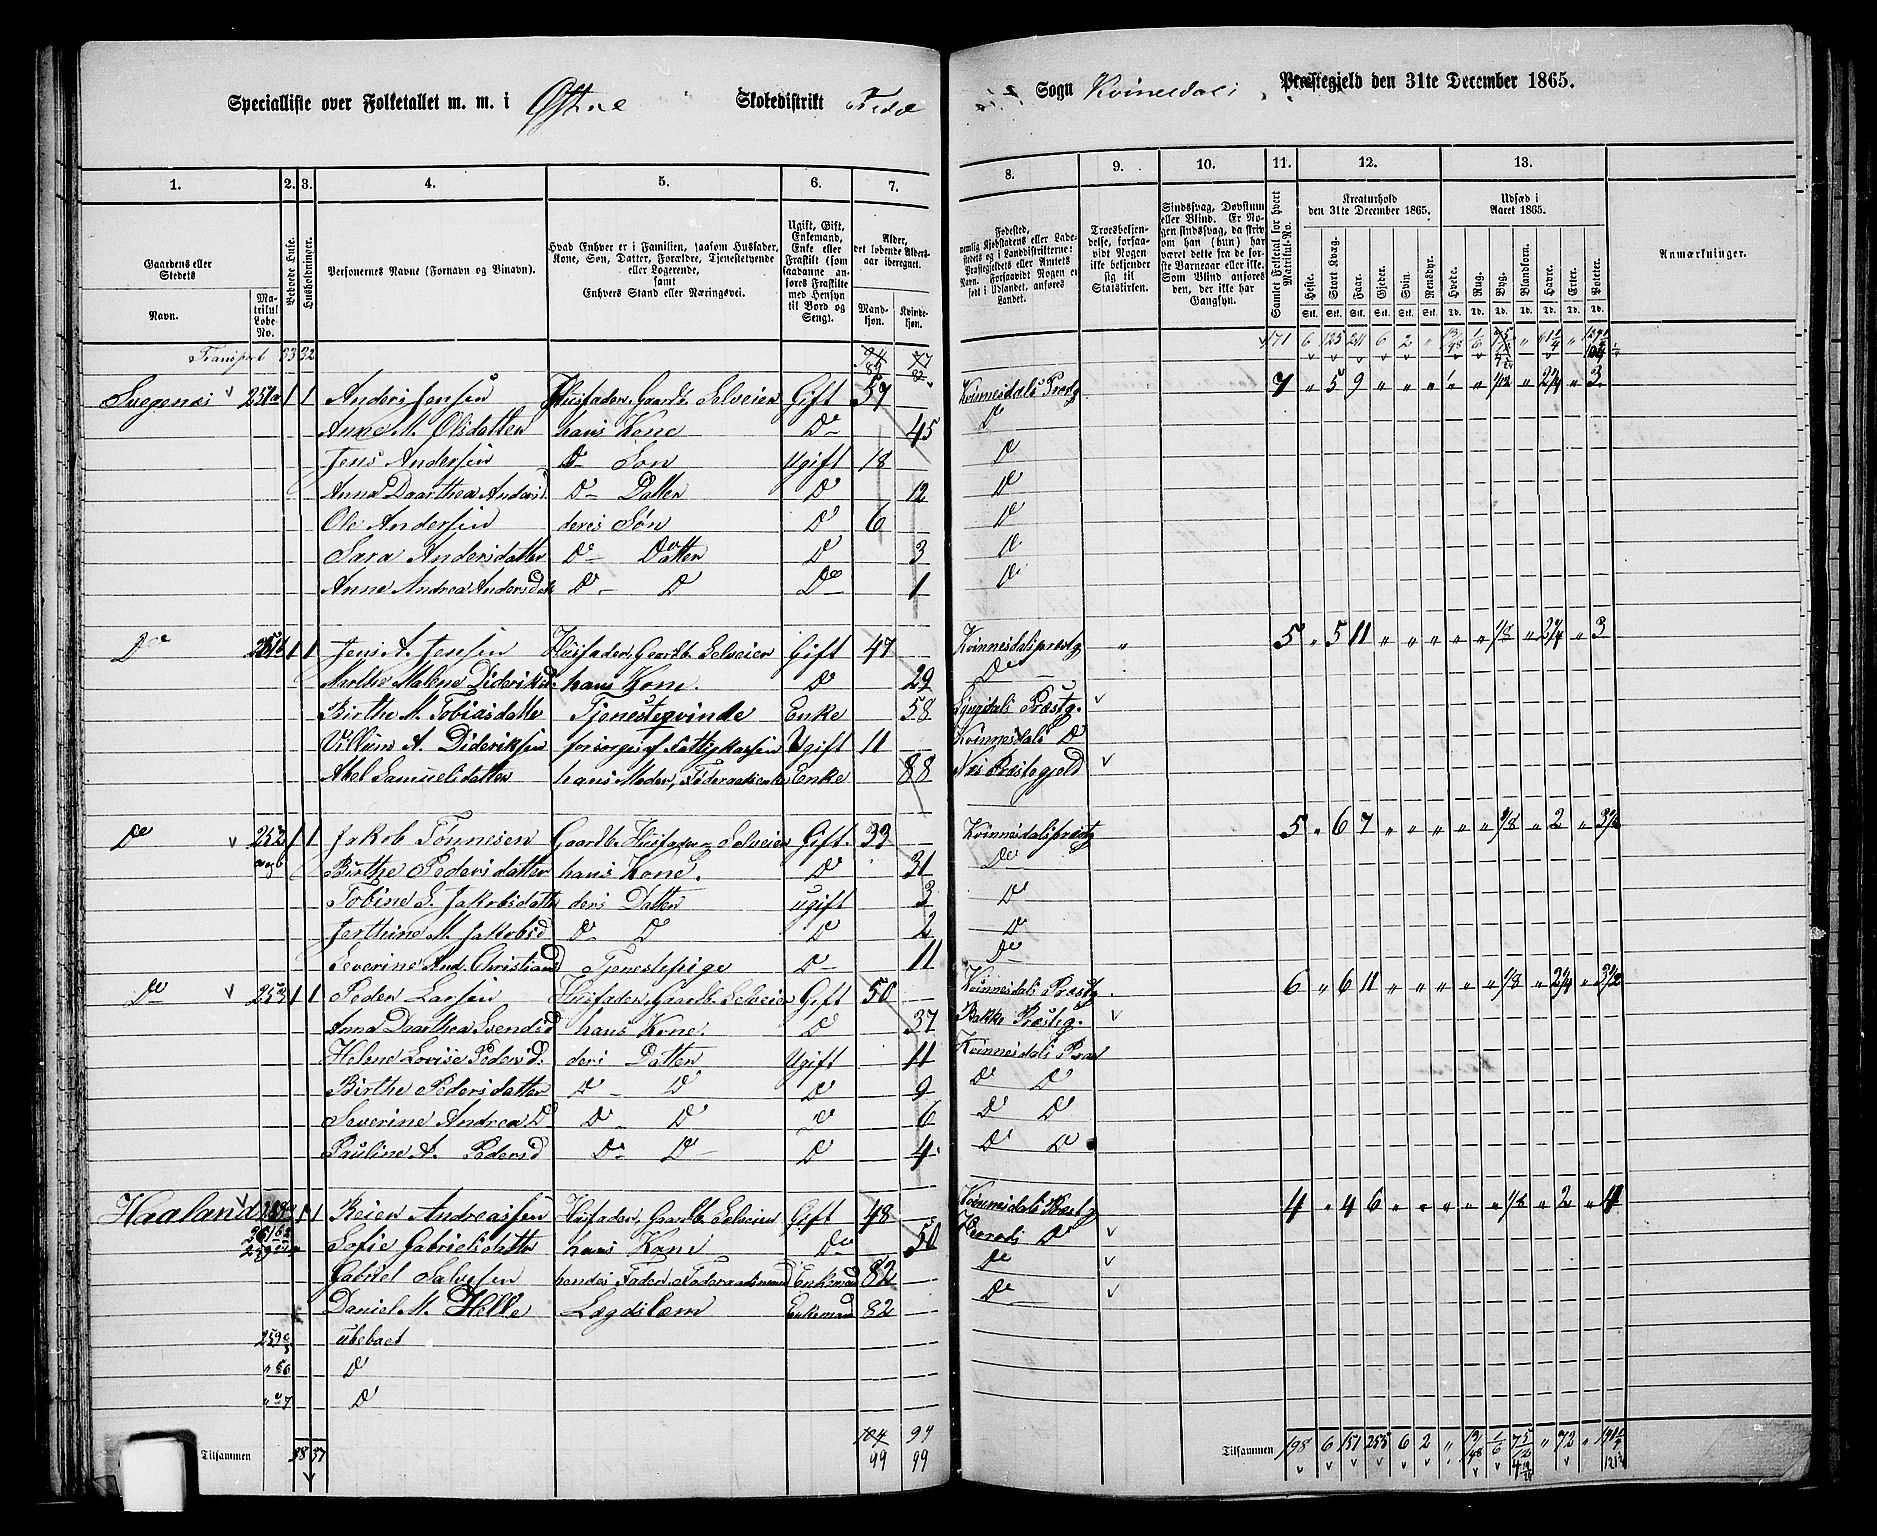 Specialliste over Folketallet m. m. i Østre Skoledistrikt Fede Sogn Kvinesdals Præstegjeld den 31te December 1865.
1. 2. 3. 4. 5. 6. 7. 8. 9. 10. 11. 12. 13.
Gaardens eller Stedets Navn. Matrikul Løbe-No. Beboede Huse. Husholdninger. Personernes Navne (Fornavn og Binavn). Hvad Enhver er i Familien, saasom Husfader, Kone, Søn, Datter, Forældre, Tjenestetyende eller Logerende, samt Enhvers Stand eller Næringsvei. Ugift, Gift, Enkemand, Enke eller Fraskilt (som saadanne anføres Fraskilte med Hensyn til Bord og Seng). Alder, det løbende Alders-aar iberegnet. Mandkøn. Kvindekøn.
Samlet Folketal for hvert Matrikul-No. Kreaturhold den 31te December 1865. Udsæd i Aaret 1865. Anmærkninger.
Heste. Stort Kvæg. Faar. Gjeder. Svin. Rensdyr. Hvede. Rug. Byg. Blandkorn. Havre. Erter. Poteter.
Transport 33 32 171 6 125 211 6 2
Svegenæs 251a 1 1 Anders Jensen Husfader, Gaardb. Selveier Gift 57 Kvinnesdals Præstg 7 " 5 9
Anne M. Olsdatter hans Kone Do 45 Do
Jens Andersen Do Søn Ugift 18 Do
Anna Daarthea Andersd. Do Datter Do 12 Do
Ole Andersen deres Søn Do 6 Do
Sara Andersdatter Do Datter Do 3 Do
Anne Andrea Andersdatt Do Do Do 1 Do
Do 251b 1 1 Jens A. Jensen Husfader, Gaardb. Selveier Gift 47 Kvinnesdals præstg " 5 " 5 11 " " " " " 1/8 " 2 1/4 " 3
Marthe Malene Dideriksd. hans Kone. Do 29 Do
Birthe M. Tobiasdatter Tjenesteqvinde Enke 58 Lyngdals Præstg.
Villum A. Dideriksen forsørges af Fattigkassen Ugift 11 Kvinnesdals Do
Abel Samuelsdatter hans Moder, Føderaadsenke Enke 88 Næs Præstegjeld
Do 252 a og b 1 1 Jakob Tønnesen Gaardb. Husfader Selveier Gift. 33 Kvinnesdals præstg 5 " 6 7 " " " " " 1/8 " 2 " 3 1/2
Birthe Pedersdatter hans Kone. Do 31 Do
Tobine S. Jakobsdatter ders Datter ugift 3 Do
Jerthine M. Jakobsd Do Do Do 2 Do
Severine And. Christiansd Tjenestepige Do 11 Do
Do 253 1 1 Peder Larsen Husfader, Gaardb. Selveier Gift 50 Kvinnesdals Præstg. 6 " 6 11 " " " " " 1/8 " 2 1/4 " 3 1/2
Anna Daarthea Svendsd hans Kone. Do 37 Bakke Præsteg.
Helene Lovise Pedersd. ders Datter Ugift 11 Kvinnesdals Præst
Birthe Pedersdatter Do Do Do 9 Do Do
Severine Andrea Do Do Do Do 6 Do Do
Pauline A. Pedersd Do Do Do 4 Do Do
Haaland 1 1 Reier Andreassen Husfader, Gaardb. Selveier Gift 48 Kvinnesdals Præstg 4 " 4 6 " " " " " 1/8 " 2 " 4
Sofie Gabrielsdatter hans Kone Do 50 Herreds Do
Gabriel Salvesen hendes Fader, Føderaadsmand Enkemand 82 Do
Daniel M. Helle Lægdslem Enkemand 82 Do
259 ubebaet
" 6 Do
" 7 Do
Tilsammen 38 37 104 99 94 99 Tilsammen 198 6 151 255 6 2